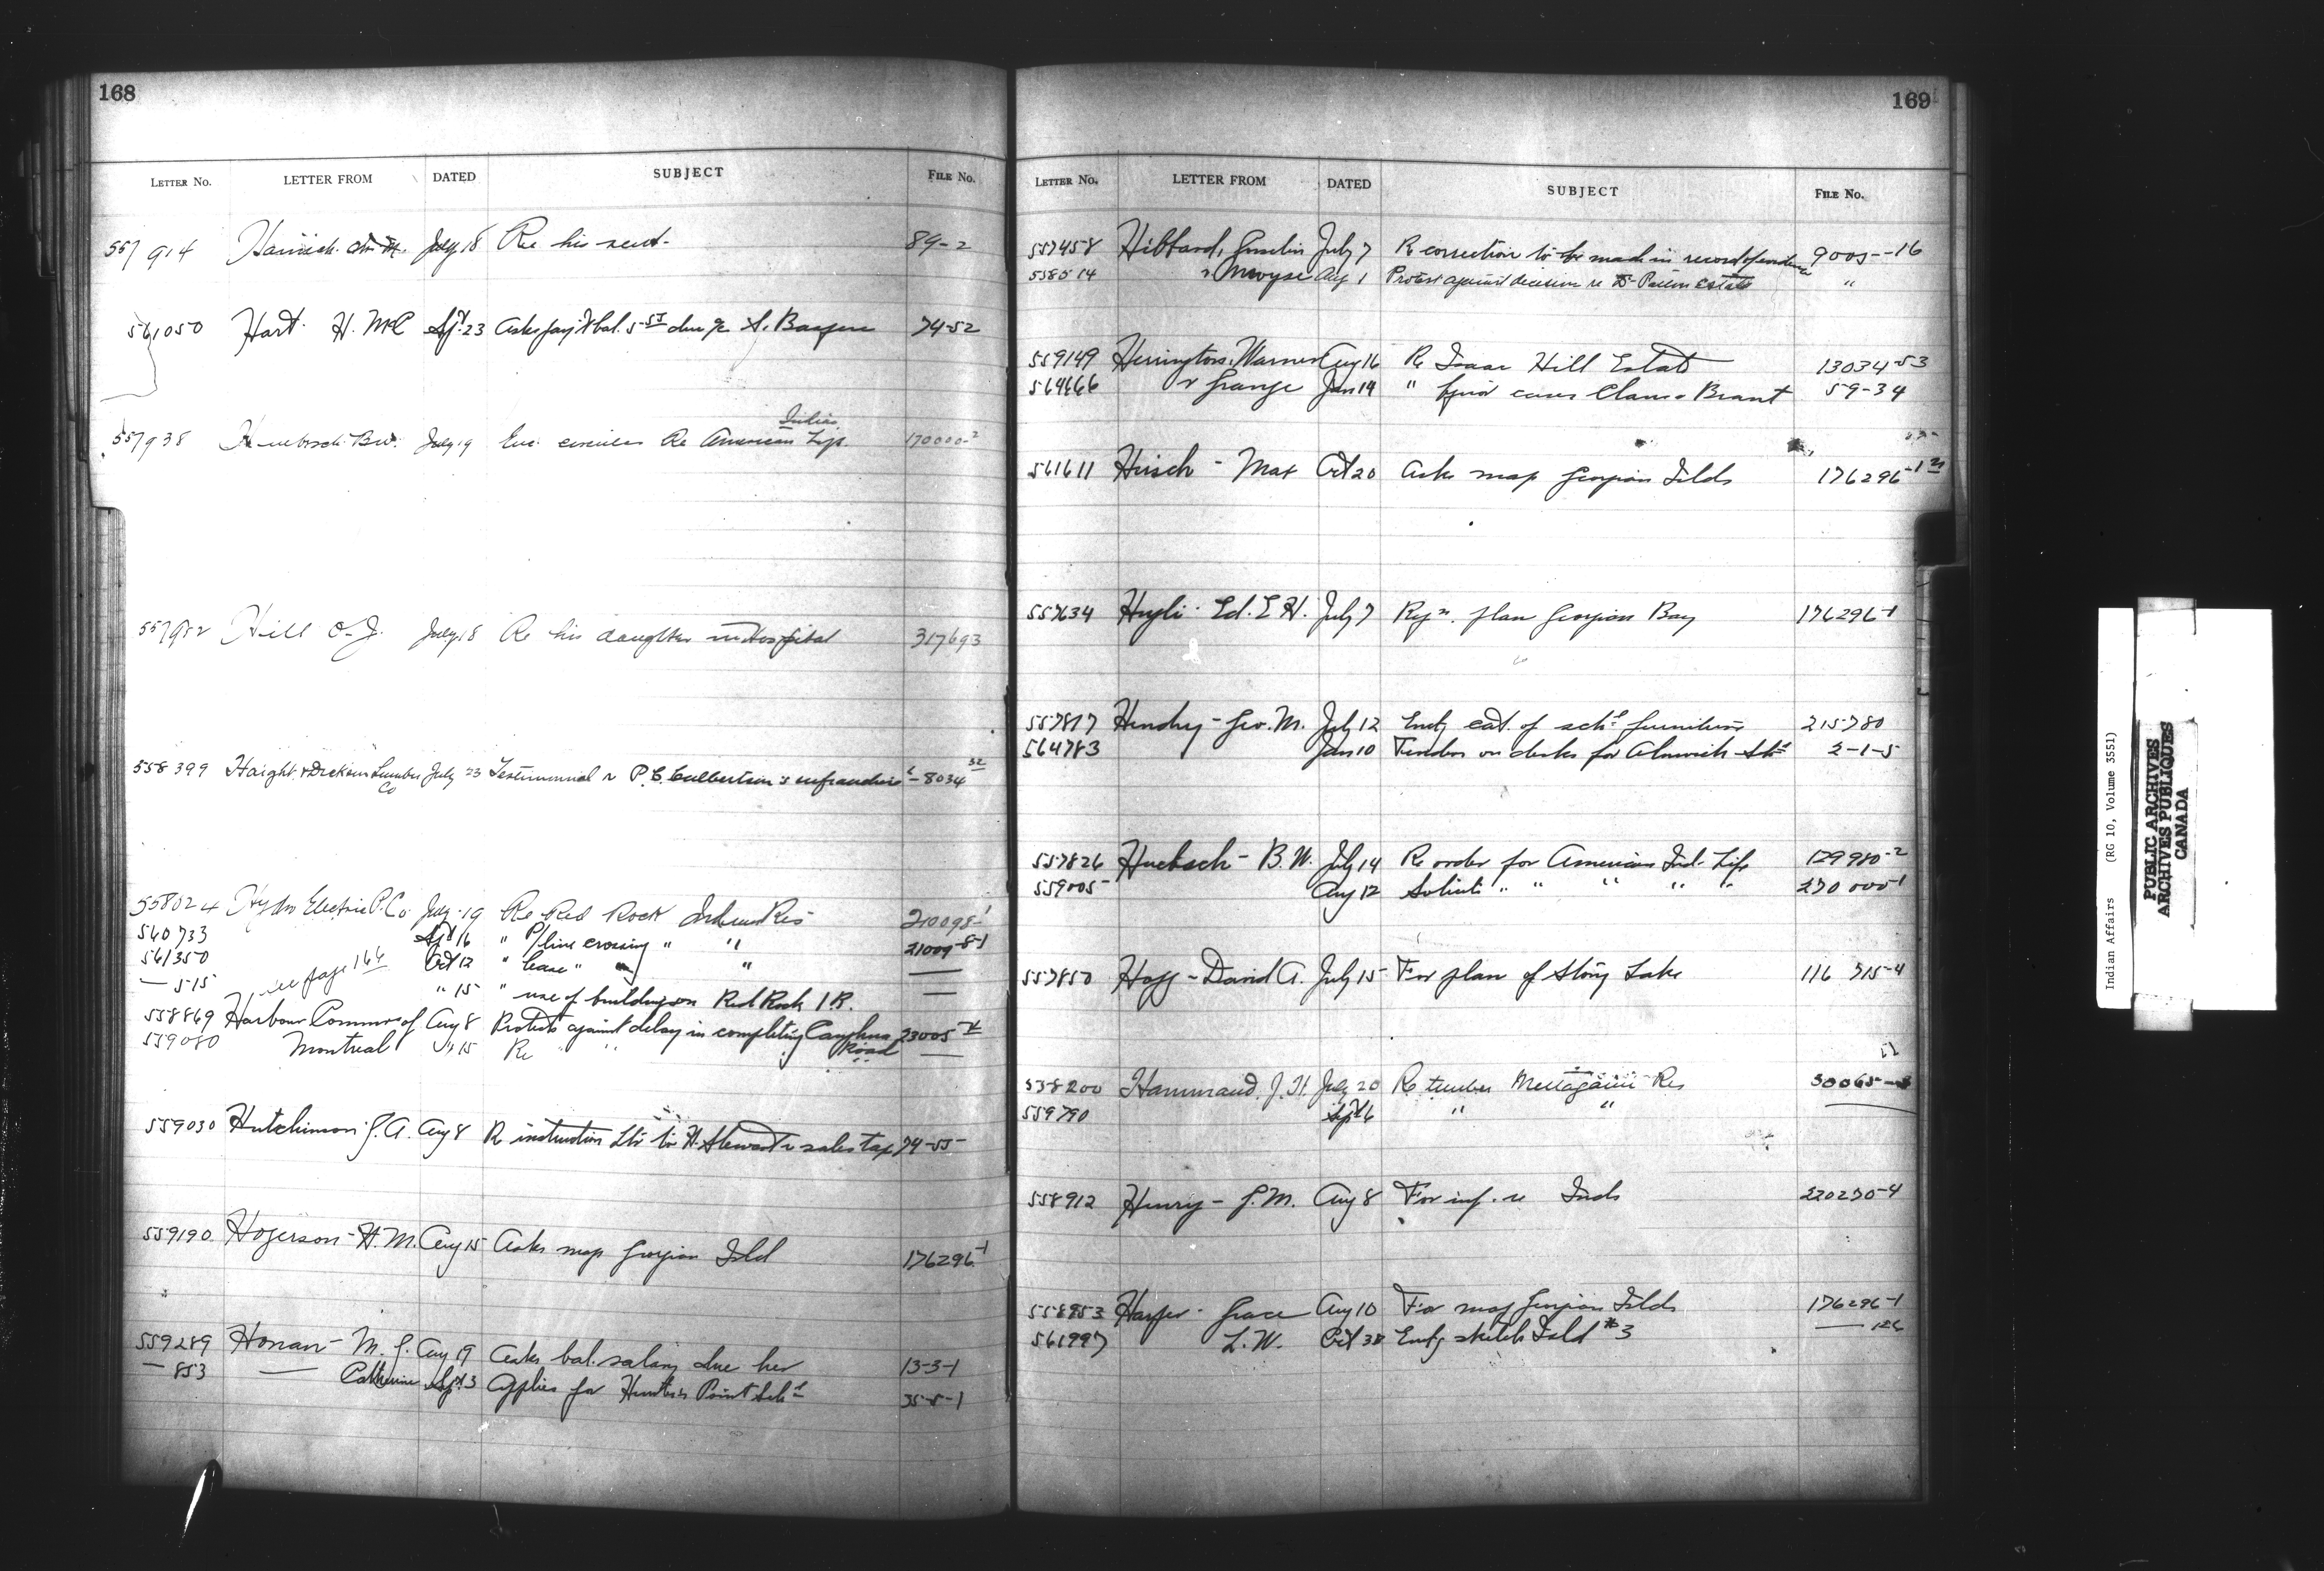 168
LETTER No. LETTER FROM DATED SUBJECT FILE No.
557914 July 18 Re his rent- 89-2
561050 Hart. H. McC Spt 23 Asks bal. due 74-52
557938 B.W. July 19 Enc. circular Re American Indian Life 170000-2
557982 Hill July 18 Re his daughter in Hospital 317693
558399 Haight & Dickson Lumber Co July 23 Testimonial P. C. Culbertson's 8034 32
558024 Hydro Electric P. Co July 19 Re Red Rock Indian Res 210098-1
560733 Spt 16 " P/line crossing " " 21009-8-1
561350 Oct 12 " lease " "
— 515 see page 166 " 15 " use of building on Red Rock I R. —
558869 Harbour Commrs of Aug 8 Protests against delay in completing Caughna Road 23005
559080 Montreal " 15 Re " " " —
559030 Hutchinson J. A. Aug 8 R instruction to H. Stewart sales tax 74-55
559190 Hogerson - H. M. Aug 15 Asks map Georgian Isld 176296-1
559289 Honan - M. J. Aug 19 Asks bal. salary due her 13-3-1
— 853 — Catherine Spt 3 Applies for Hunters Point Schl 35-5-1
169
LETTER No. LETTER FROM DATED SUBJECT FILE No.
557458 Hibbard, Gosselin July 7 R correction to be made in record of evidence 9005--16
558514 " Moyse Aug 1 Protest against decision re Estate "
559149 Herrington, Warner Aug 16 R Isaac Hill Estate 13034-53
564666 & Grange Jan 14 " Claus & Brant 59-34
561611 Hirsch - Max Oct 20 Asks map Georgian Islds 176296-1
557634 Ed. E H. July 7 plan Georgian Bay 176296-1
557817 Hendry - Geo. M. July 12 cat. of schl furniture 215780
564783 Jan 10 Tender on desks for Alnwick Schl 2-1-5
557826 Huebsch - B. W. July 14 R order for American Ind. Life 129980-2
559005 Aug 12 Solicits " " " " " 270000-1
557850 Hogg - David A. July 15 For plan of Stony Lake 116 715-4
558200 Hammand, J. H. July 20 R timber Mettagami Res 30065
559790 Spt 6 " " —
558912 Henry - J. M. Aug 8 For inf. re Inds 220230-4
558953 Harper - Grace Aug 10 For map Georgian Islds 176296-1
561997 L. W. Oct 30 sketch Isld #3 —
Indian Affairs (RG 10, Volume 3551)
PUBLIC ARCHIVES
ARCHIVES PUBLIQUES
CANADA